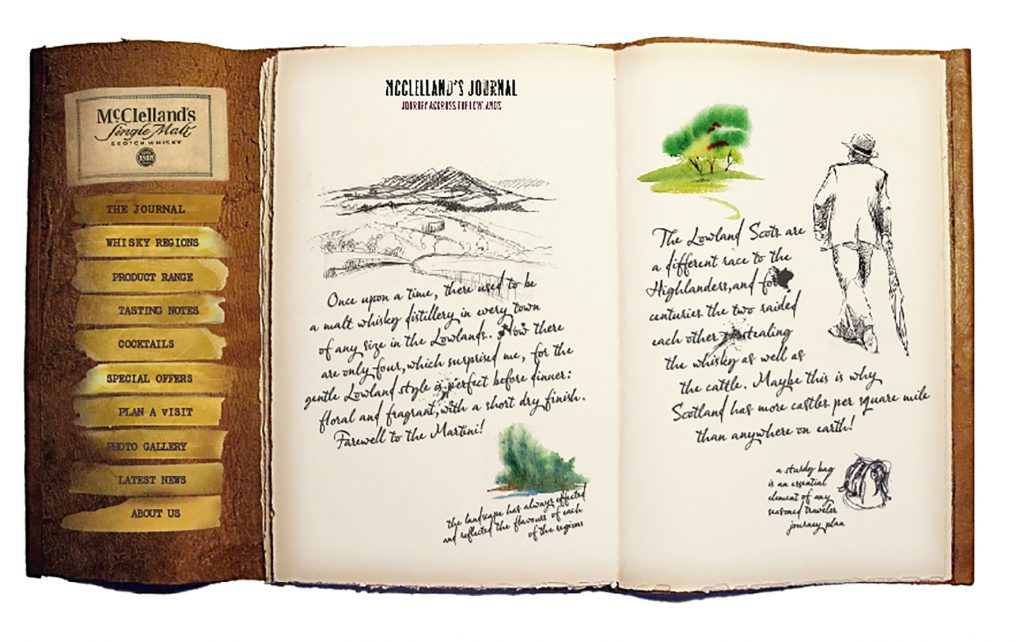 McClelland's
Single Malt
SCOTCH WHISKY
1818
THE JOURNAL
WHISKY REGIONS
PRODUCT RANGE
TASTING NOTES
COCKTAILS
SPECIAL OFFERS
PLAN A VISIT
PHOTO GALLERY
LATEST NEWS
ABOUT US
MCCLELLAND'S JOURNAL
JOURNEY ACCROSS THE LOWLANDS
Once upon a time, there used to be
a malt whisky distillery in every town
of any size in the Lowlands. Now there
are only four, which surprised me, for the
gentle Lowland style is perfect before dinner:
floral and fragrant, with a short dry finish.
Farewell to the Martini!
the landscape has always affected
and reflected the flavours of each
of the regions
The Lowland Scots are
a different race to the
Highlanders, and for
centuries the two raided
each other stealing
the whiskey as well as
the cattle. Maybe this is why
Scotland has more castles per square mile
than anywhere on earth!
a sturdy bag
is an essential
element of any
seasoned traveler
journey plan